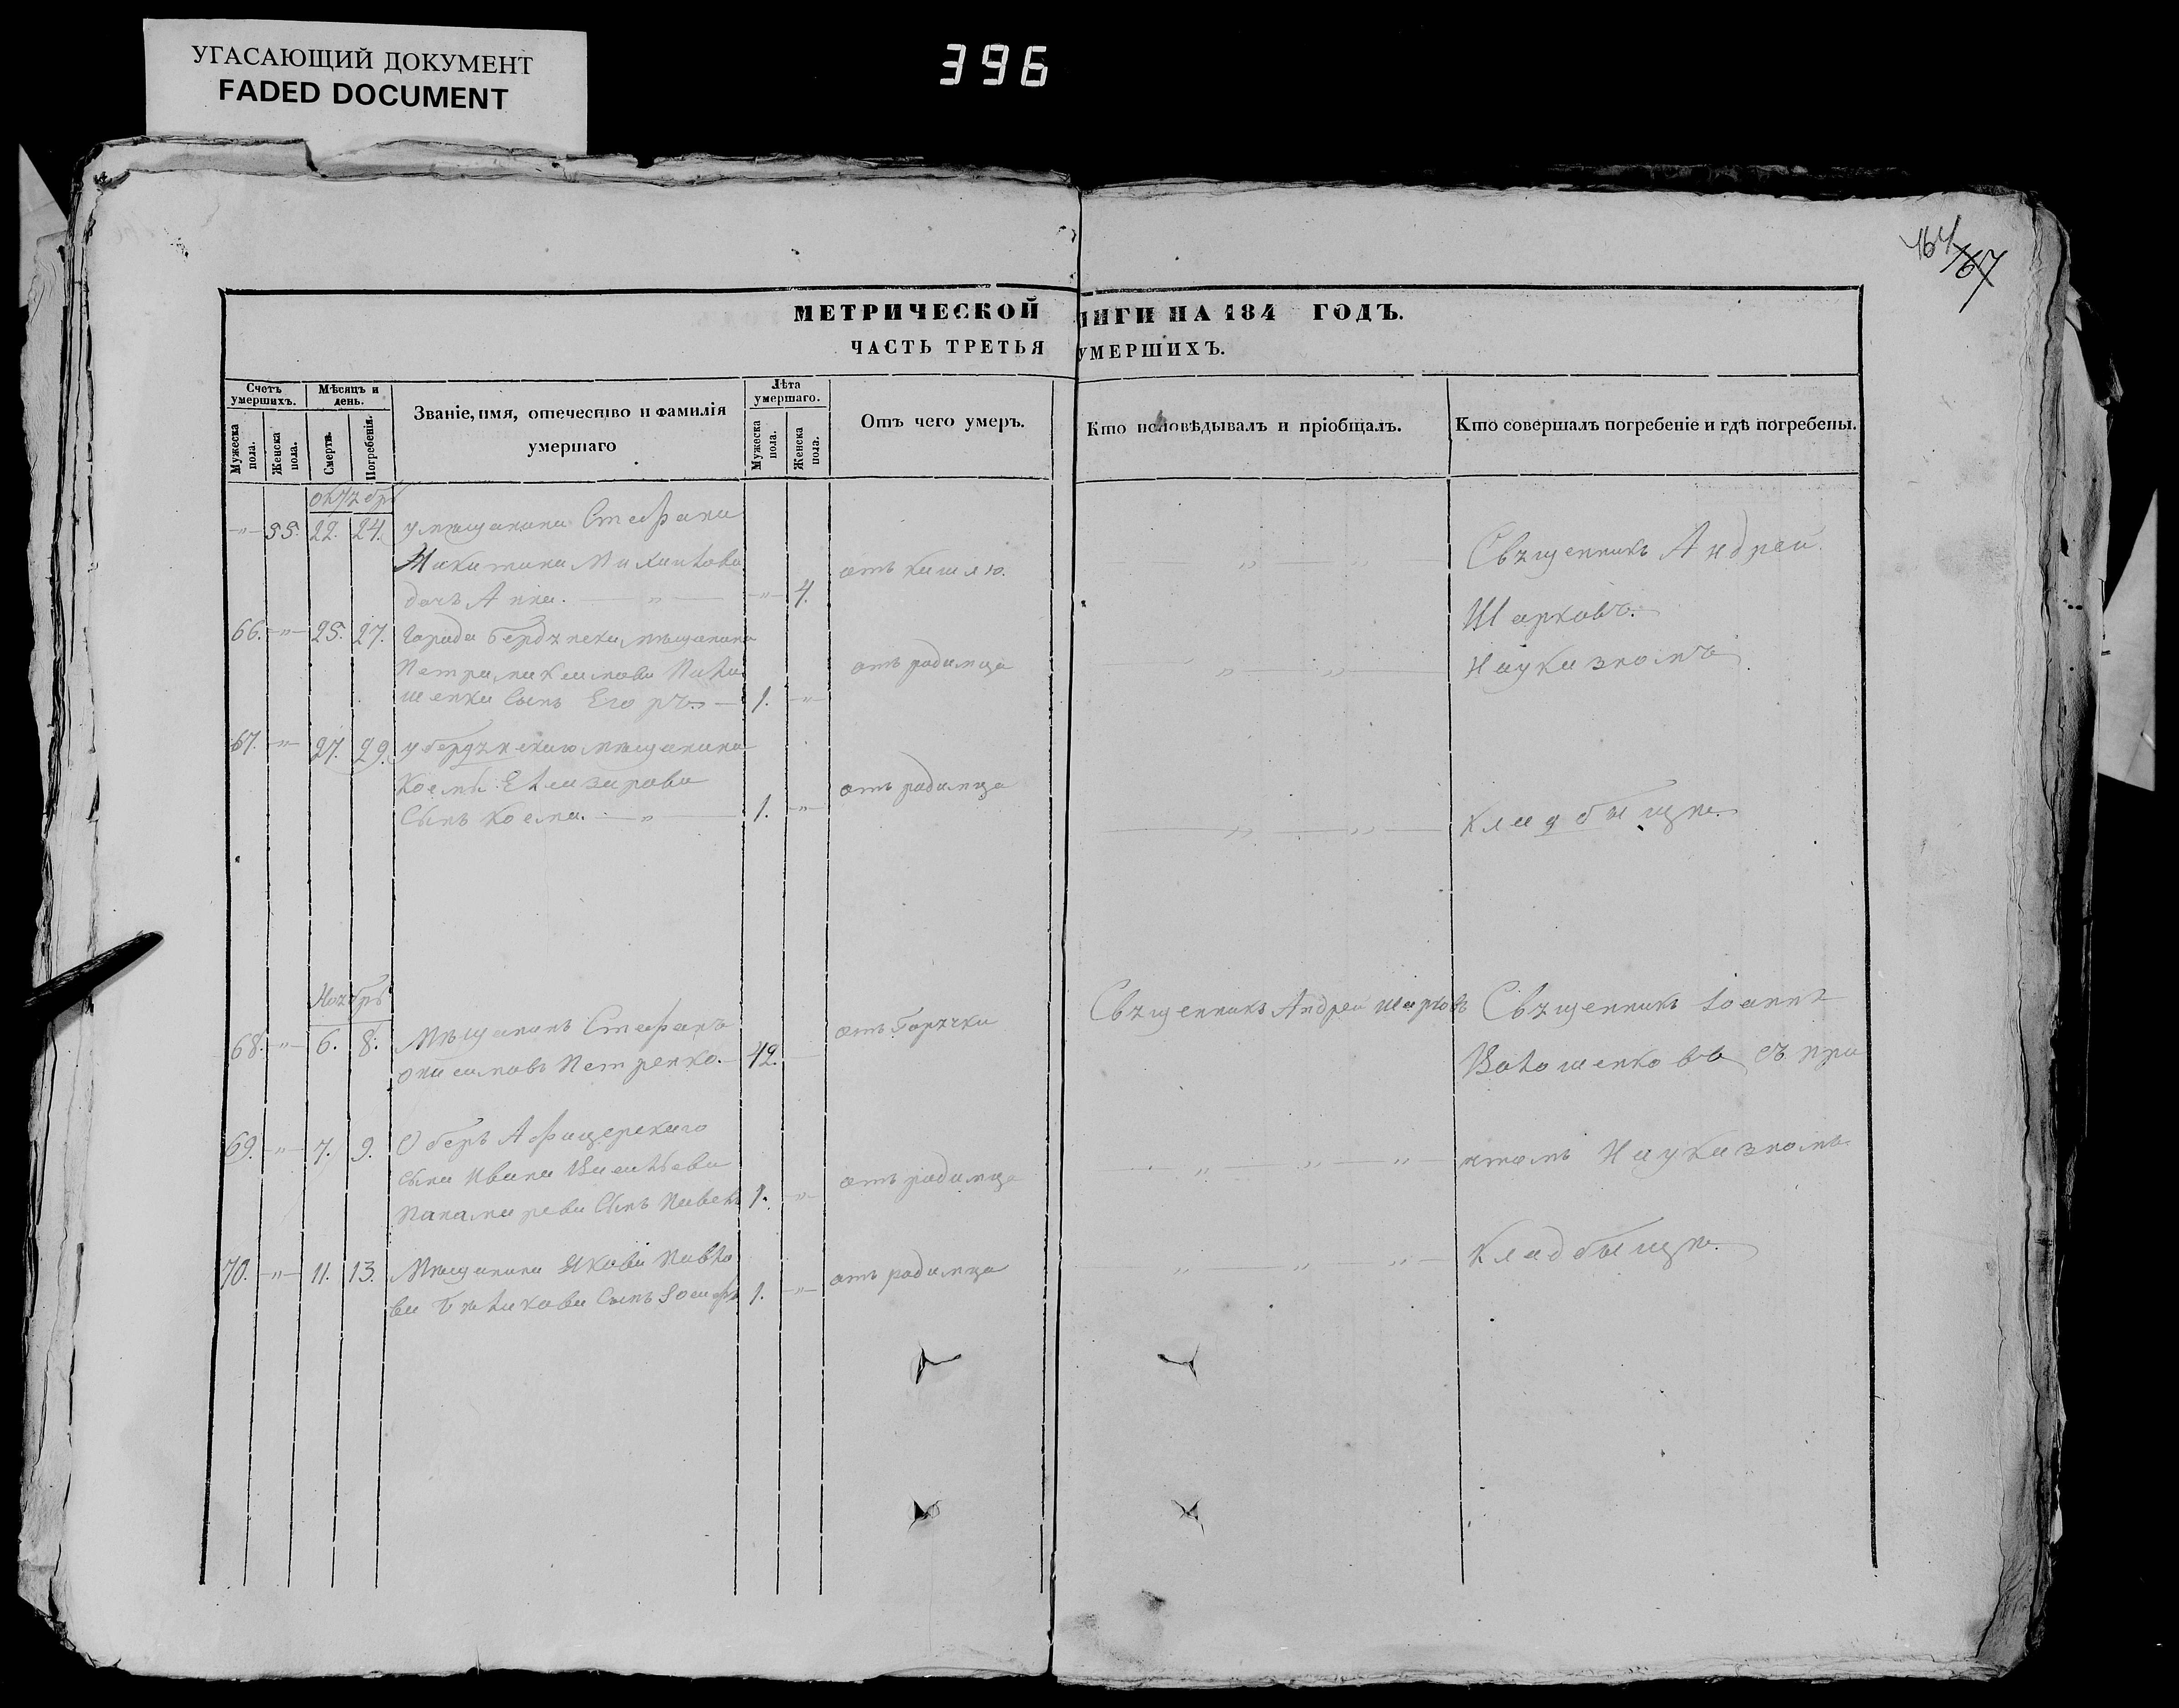 УГАСАЮЩИЙ ДОКУМЕНТ
FADED DOCUMENT
396
164/167
МЕТРИЧЕСКОЙ НИГИ НА 184 ГОДЪ.
ЧАСТЬ ТРЕТЬЯ УМЕРШИХЪ.
Счетъ умершихъ.
Мужеска пола.
Женска пола.
Мѣсяцъ и день.
Смерти.
Погребенія.
Званіе, имя, отечество и фамилія
умершаго
Лѣта умершаго.
Мужеска пола.
Женска пола.
Отъ чего умеръ.
Кто исповѣдывалъ и пріобщалъ.
Кто совершалъ погребеніе и гдѣ погребены.
Октябрь
55. 22. 24. умещанина Стефана
Никитина
дочь Анна. 4. отъ кашлю.
Священникъ Андрей
Шарковъ.
66. 25. 27. Города Бердянска мещанина
Петра
шенки Сынъ Егоръ. 1. отъ родимца
На указномъ
67. 27. 29. у бердянскаго мещанина
Космы Елизарова
Сынъ Косма. 1. отъ родимца
кладбище.
Ноябрь
68. 6. 8. Мещанинъ Стефанъ
Онисимовъ Петренко. 42. отъ Горячки
Священникъ Андрей Шарковъ
Священникъ Іоаннъ
Волошенковъ съ при
69. 7. 9. Оберъ Афицерскаго
сына Ивана Васильева
Панамарева Сынъ Павелъ 1. отъ родимца
чтомъ На указномъ
70. 11. 13. Мещанина Якова Павло
ва Сынъ Іосифъ 1. отъ родимца
Кладбище.